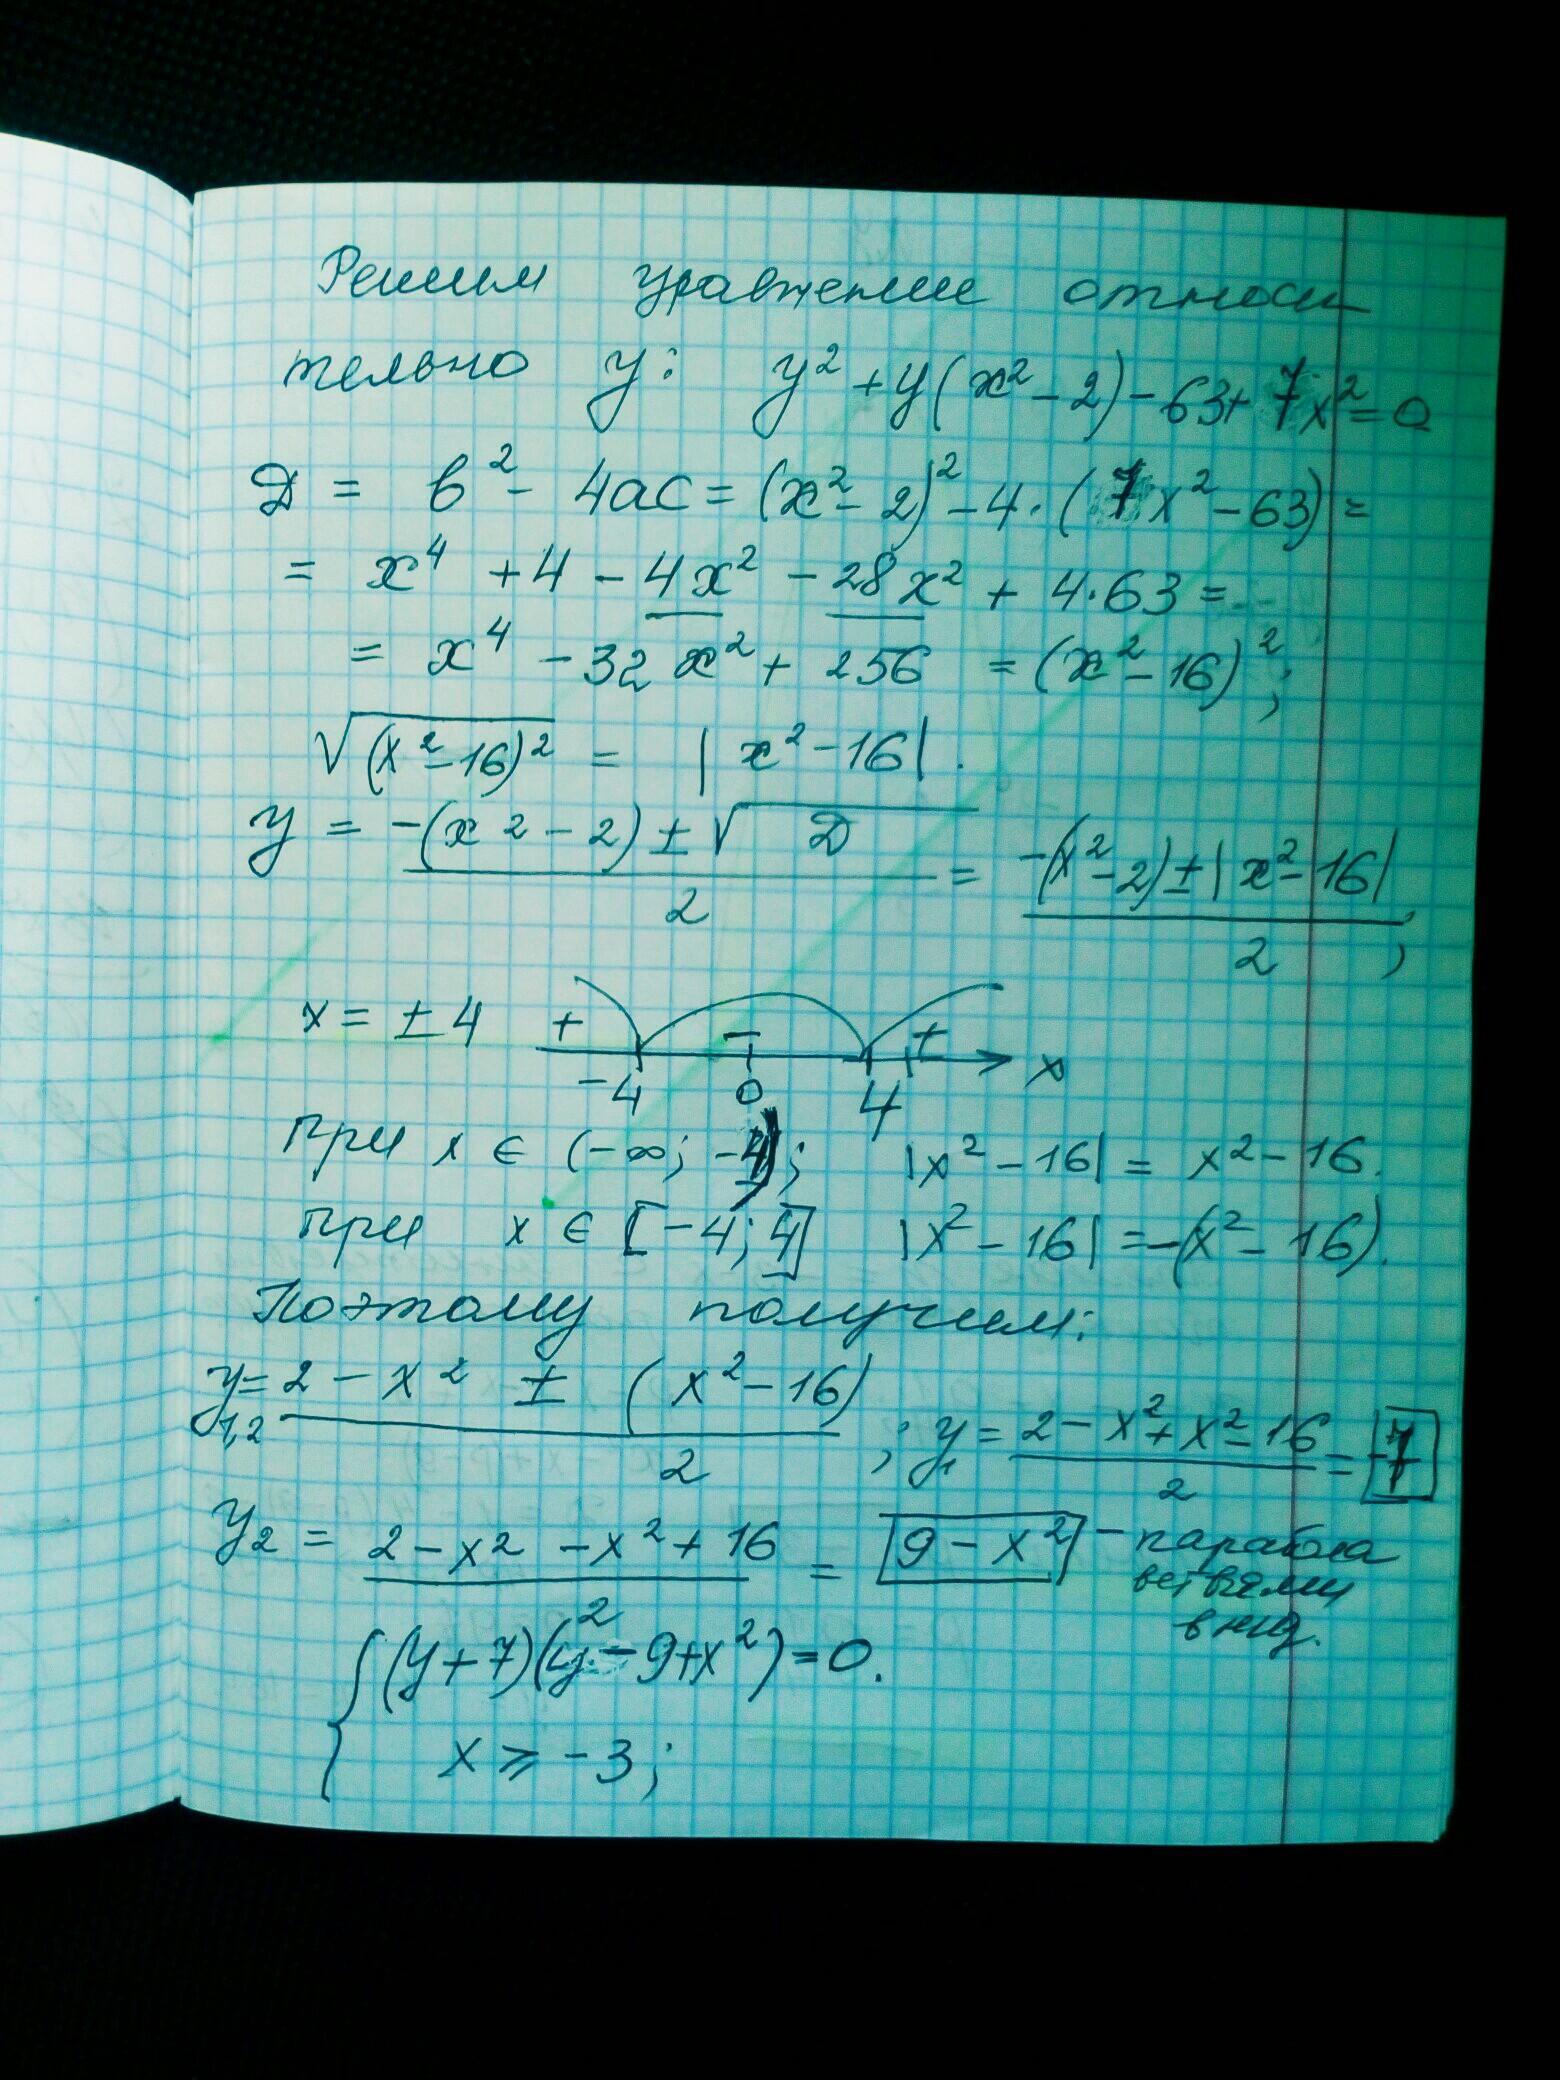 Решим уравнение относи
тельно y: y² + y(x² - 2) - 63 + 7x² = 0
D = b² - 4ac = (x² - 2)² - 4·(7x² - 63) =
= x⁴ + 4 - 4x² - 28x² + 4·63 =
= x⁴ - 32x² + 256 = (x² - 16)²;
√(x² - 16)² = |x² - 16|.
y = (-(x² - 2) ± √D)/2 = (-(x² - 2) ± |x² - 16|)/2;
x = ± 4 + - +
-4 0 4 x
при x ∈ (-∞; -4); |x² - 16| = x² - 16.
при x ∈ [-4; 4] |x² - 16| = -(x² - 16).
Поэтому получим:
y₁,₂ = (2 - x² ± (x² - 16))/2; y₁ = (2 - x² + x² - 16)/2 = -7
y₂ = (2 - x² - x² + 16)/2 = 9 - x² - парабола
ветвями
вниз.
{ (y + 7)(y² - 9 + x²) = 0.
x ⩾ -3;